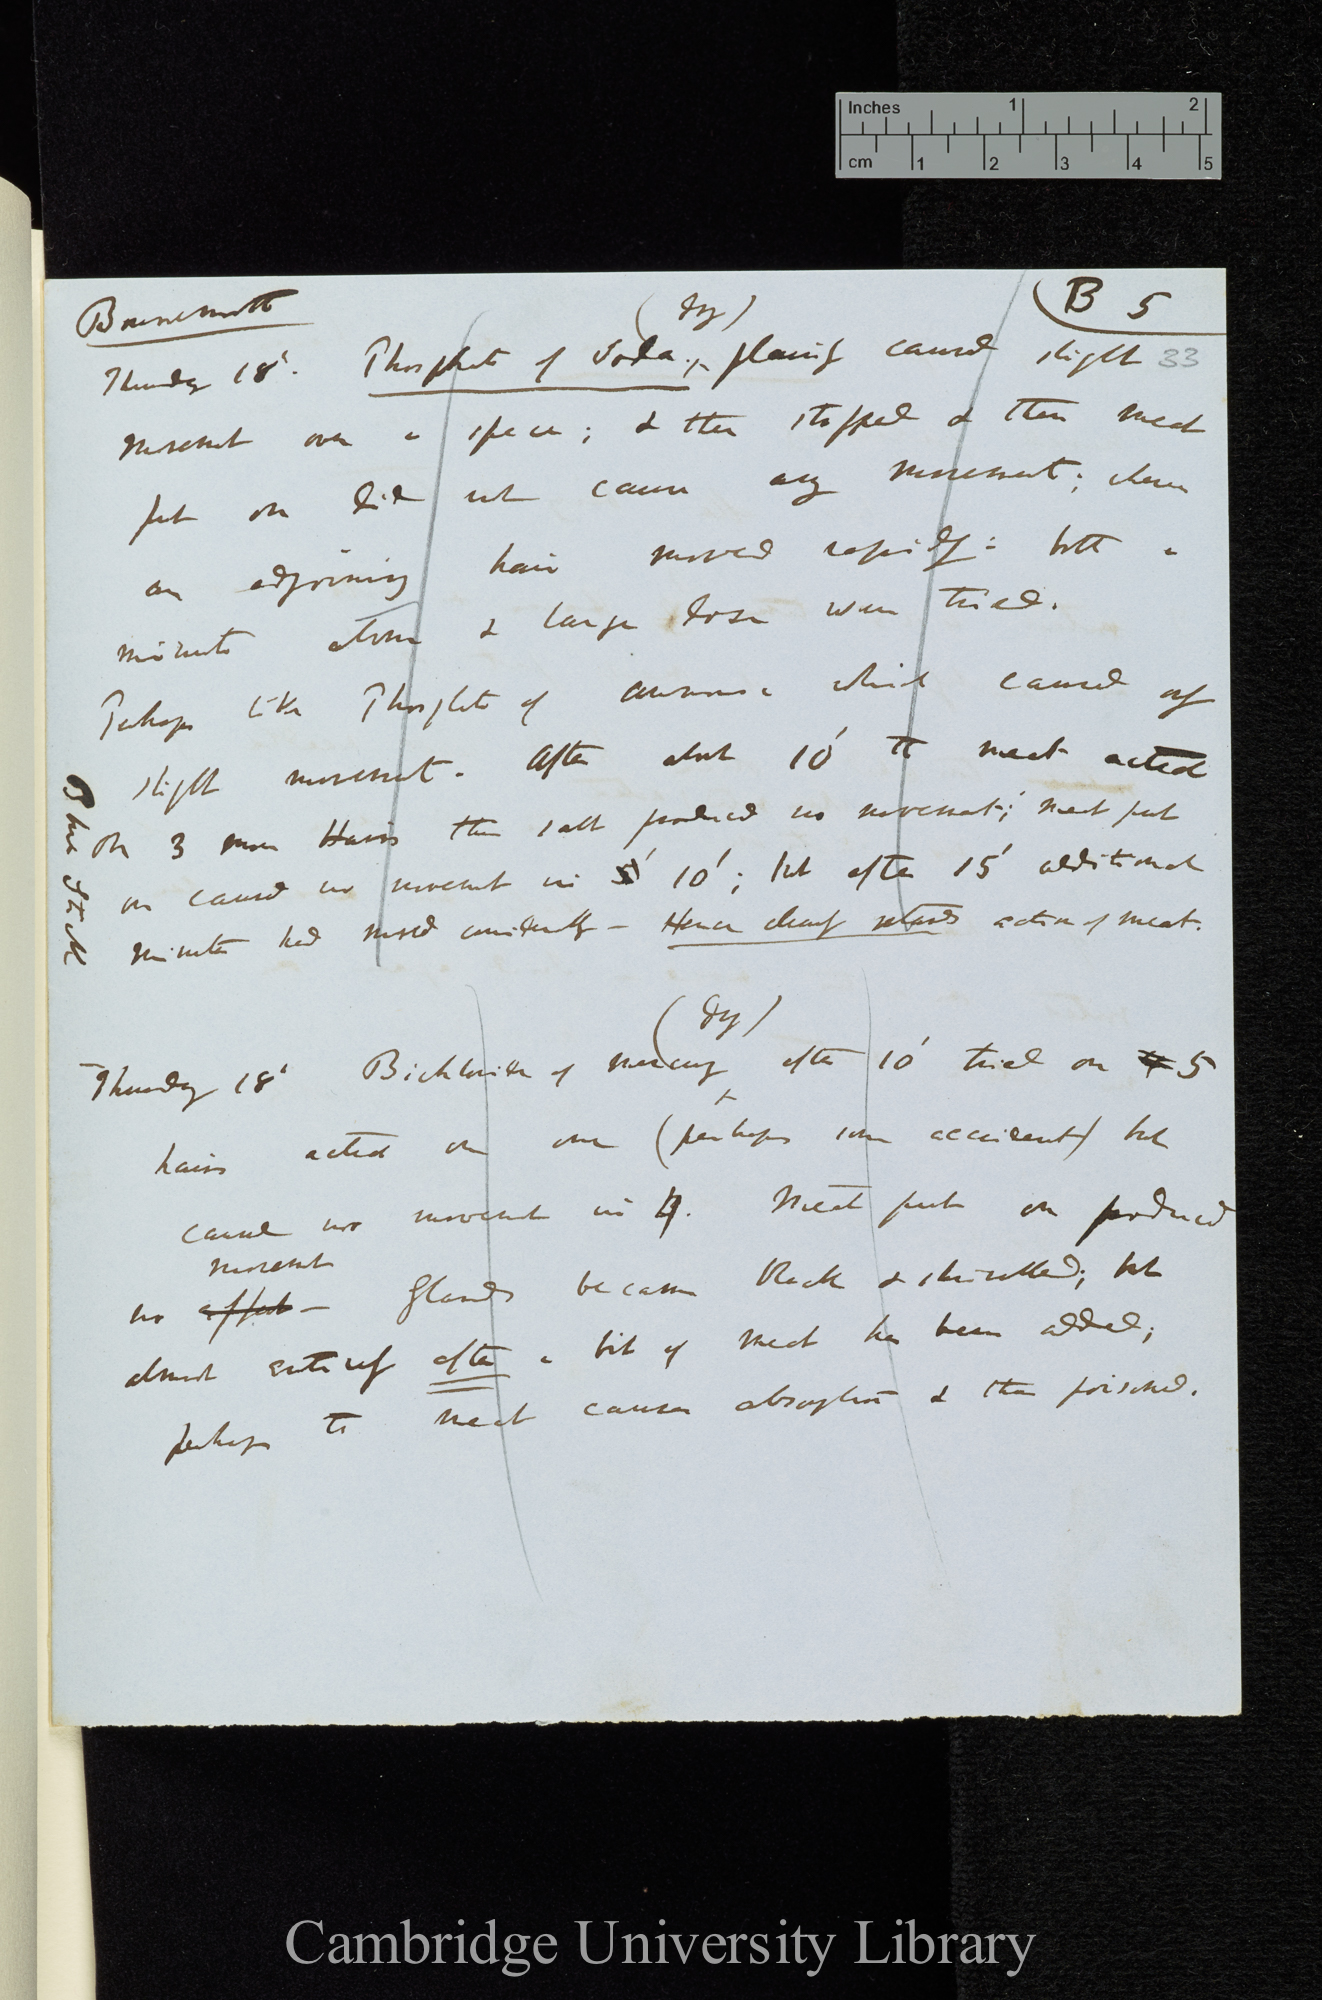 Inches 1 2
cm 1 2 3 4 5
Bournemouth (dry) B 5
Thursday 18'. Phosphate of Soda, plainly caused slight 33
movement over a space; & then stopped & then meat
put on did not cause any movement; whereas
an adjoining hair moved rapidly: both a
minute atom & large dose were tried.
Perhaps like Phosphate of ammonia which caused only
slight movement. After about 10' the meat acted
On 3 more Hairs the salt produced no movement; meat put
on caused no movement in 5' 10'; but after 15' additional
minutes had moved considerably — Hence clearly retards action of meat.
Blue Stick
(dry)
Thursday 18' Bichloride of mercury after 10' tried on 4 5
hairs acted on one (perhaps some accident) but
caused no movement in 4. Meat put on produced
movement
no effect — Glands became black & shrivelled; but
almost entirely after a bit of meat has been added;
perhaps the meat causes absorption & then poisoned.
Cambridge University Library